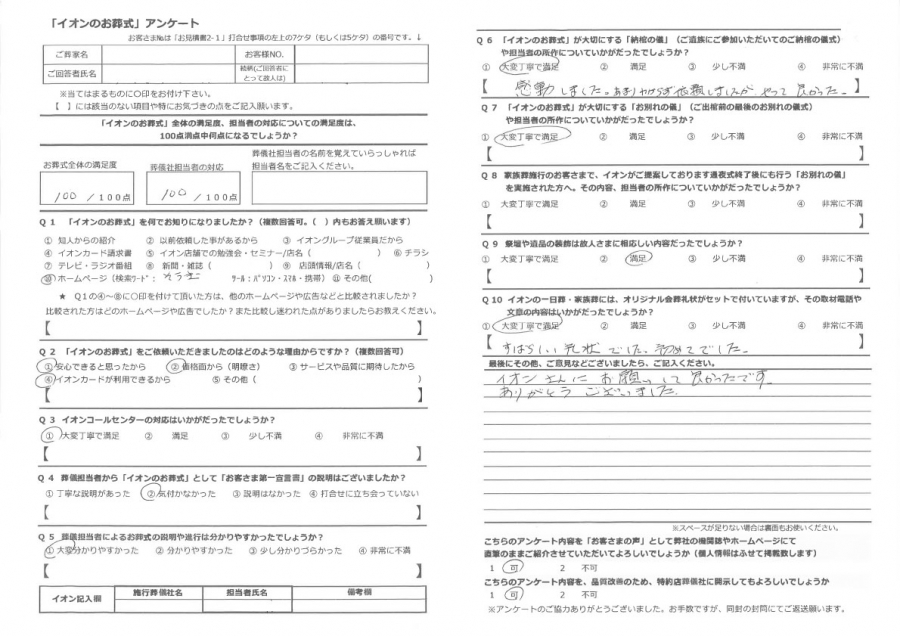 「イオンのお葬式」アンケート
お客さま№は「お見積書2-1」打合せ事項の左上の7ケタ(もしくは5ケタ)の番号です。↓
ご葬家名 お客様NO.
ご回答者氏名 続柄(ご回答者にとって故人は)
※当てはまるものに○印をお付け下さい。
【 】には該当のない項目や特にお気づきの点をご記入願います。
「イオンのお葬式」全体の満足度、担当者の対応についての満足度は、
100点満点中何点になるでしょうか?
お葬式全体の満足度 葬儀社担当者の対応 葬儀社担当者の名前を覚えていらっしゃれば
担当者名をご記入ください。
100 /100点 100 /100点
Q1 「イオンのお葬式」を何でお知りになりましたか?(複数回答可。( )内もお答え願います)
① 知人からの紹介 ② 以前依頼した事があるから ③ イオングループ従業員だから
④ イオンカード請求書 ⑤ イオン店舗での勉強会・セミナー/店名( ) ⑥ チラシ
⑦ テレビ・ラジオ番組 ⑧ 新聞・雑誌( ) ⑨ 店頭情報/店名( )
⑩ ホームページ(検索ワード: そうぎ ツール:パソコン・スマホ・携帯) ⑪ その他( )
★ Q1の④~⑩に○印を付けて頂いた方は、他のホームページや広告などと比較されましたか?
比較された方はどのホームページや広告でしたか?また比較し迷われた点がありましたらお教えください。
【 】
Q2 「イオンのお葬式」をご依頼いただきましたのはどのような理由からですか?(複数回答可)
① 安心できると思ったから ② 価格面から(明瞭さ) ③ サービスや品質に期待したから
④ イオンカードが利用できるから ⑤ その他( )
【 】
Q3 イオンコールセンターの対応はいかがだったでしょうか?
① 大変丁寧で満足 ② 満足 ③ 少し不満 ④ 非常に不満
【 】
Q4 葬儀担当者から「イオンのお葬式」として「お客さま第一宣言書」の説明はございましたか?
① 丁寧な説明があった ② 気付かなかった ③ 説明はなかった ④ 打合せに立ち会っていない
【 】
Q5 葬儀担当者によるお葬式の説明や進行は分かりやすかったでしょうか?
① 大変分かりやすかった ② 分かりやすかった ③ 少し分かりづらかった ④ 非常に不満
【 】
イオン記入欄 施行葬儀社名 担当者氏名 備考欄
Q6 「イオンのお葬式」が大切にする「納棺の儀」(ご遺族にご参加いただいてのご納棺の儀式)
や担当者の所作についていかがだったでしょうか?
① 大変丁寧で満足 ② 満足 ③ 少し不満 ④ 非常に不満
【 感動しました。あまりわからず依頼しましたが やって良かった。 】
Q7 「イオンのお葬式」が大切にする「お別れの儀」(ご出棺前の最後のお別れの儀式)
や担当者の所作についていかがだったでしょうか?
① 大変丁寧で満足 ② 満足 ③ 少し不満 ④ 非常に不満
【 】
Q8 家族葬施行のお客さまで、イオンがご提案しております通夜式終了後にも行う「お別れの儀」
を実施された方へ。その内容、担当者の所作についていかがだったでしょうか?
① 大変丁寧で満足 ② 満足 ③ 少し不満 ④ 非常に不満
【 】
Q9 祭壇や遺品の装飾は故人さまに相応しい内容だったでしょうか?
① 大変丁寧で満足 ② 満足 ③ 少し不満 ④ 非常に不満
【 】
Q10 イオンの一日葬・家族葬には、オリジナル会葬礼状がセットで付いていますが、その取材電話や
文章の内容はいかがだったでしょうか?
① 大変丁寧で満足 ② 満足 ③ 少し不満 ④ 非常に不満
【 すばらしい礼状でした。初めてでした。 】
最後にその他、ご意見などございましたら、ご記入ください。
イオンさんにお願いして良かったです。
ありがとうございました。
※スペースが足りない場合は裏面もお使いください。
こちらのアンケート内容を「お客さまの声」として弊社の機関誌やホームページにて
直筆のままご紹介させていただいてよろしいでしょうか(個人情報はふせて掲載致します)
1 可 2 不可
こちらのアンケート内容を、品質改善のため、特約店葬儀社に開示してもよろしいでしょうか
1 可 2 不可
※アンケートのご協力ありがとうございました。お手数ですが、同封の封筒にてご返送願います。